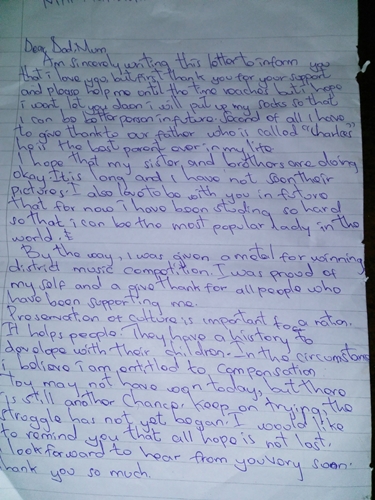 Dear Dad, Mum,
Am sincerely writing this letter to inform you
that i love you, but first thank you for your support
and please help me until the time reaches but i hope
i wont let you down i will put up my socks so that
i can be better person in future. Second of all i have
to give thank to our father who is called "Charles"
he is the best parent ever in my life
I hope that my sister, and brothers are doing
okay. It is long and i have not seen their
pictures. I also love to be with you in future
that for now i have been studing so hard
so that i can be the most popular lady in the
world.
By the way, i was given a medel for winning
district music competition. I was proud of
my self and a give thank for all people who
have been supporting me.
Preservation of culture is important for a nation.
It helps people. They have a history to
develope with their children. In the circumstance
i believe i am entitled to compensation
You may not have won today, but there
is still another chance. Keep on trying, the
struggle has not yet began. I would like
to remind you that all hope is not lost.
I look forward to hear from you very soon.
thank you so much.